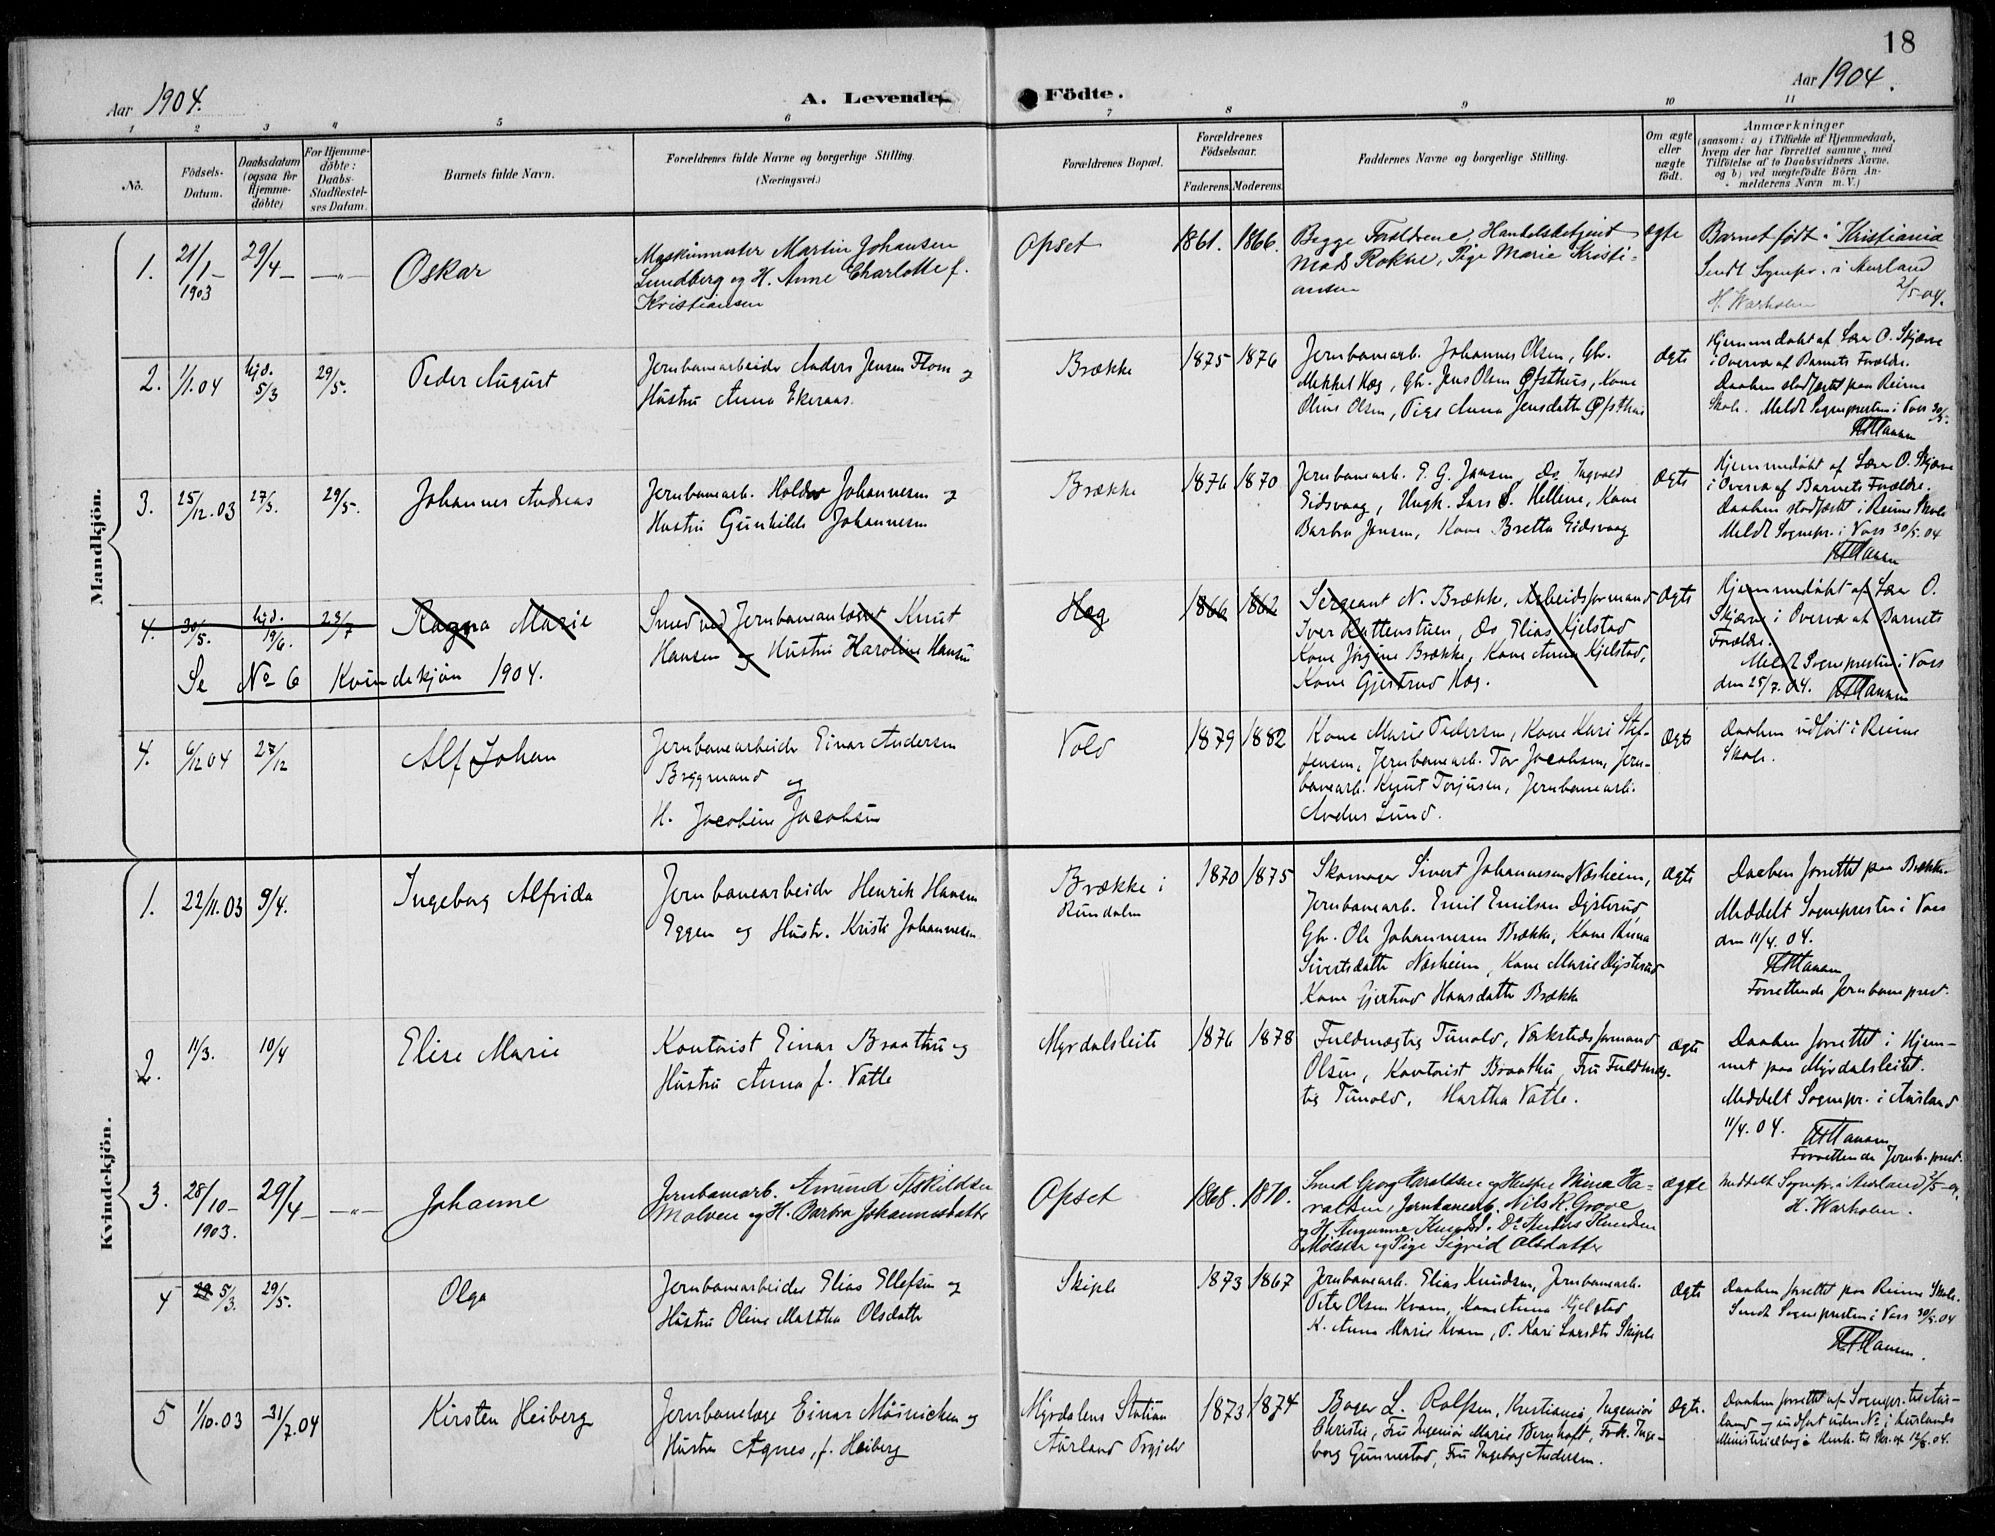 18
Aar 1904.
A. Levende
Födte.
Aar 1904.
1 2 3 4 5 6 7 8 9 10 11
No.
Födsels-
Datum.
Daabsdatum
(ogsaa for
Hjemme-
döbte)
For Hjemme-
döbte:
Daabs-
Stadfæstel-
ses Datum.
Barnets fulde Navn.
Forældrenes fulde Navne og borgerlige Stilling.
(Næringsvei.)
Forældrenes Bopæl.
Forældrenes
Födselsaar.
Faderens. Moderens.
Faddernes Navne og borgerlige Stilling.
Om ægte
eller
uægte
födt.
Anmærkninger
(saasom: a) i Tilfælde af Hjemmedaab,
hvem der har forrettet samme, med
Tilföielse af to Daabsvidners Navne,
og b) ved uægtefödte Börn An-
melderens Navn m. V.)
Mandkjön.
1.
21/1-
1903
29/4-
-"-
Oskar
Maskinmester Martin Johansen
Lundberg og H. Anne Charlotte f.
Kristiansen
Opset
1861. 1866.
Begge Forældrene, Handelsbetjent
Mads Rokke, Pige Marie Kristi-
ansen
ægte
Barnet födt i Kristiania
Sendt Sognepr. i Aurland
2/5-04.
H. Warholm
2.
1/1.04
hjd.
5/3
29/5.
Peder August
Jernbanearbeider Anders Jensen Flom og
Hustru Anna Ekeraas.
Brække
1875 1876
Jernbanearb. Johannes Olsen, Gbr.
Mekkel Hæg, Gbr. Jens Olsen Øfsthus, Kone
Oline Olsen, Pige Anna Jensdatter Øfsthus
Ægte
Hjemmedöbt af Lærer O. Skjærve
i Overvær af Barnets Forældre.
Daaben stadfæstet paa Reime
Skole. Meldt Sognepresten i Voss 30/5.
Hansen
3.
25/12.03
27/3.
29/5.
Johannes Andreas
Jernbanearb. Holder Johannesen og
Hustru Gunhilde Johannesen
Brække
1876 1870
Jernbanearb. P. G. Jansen, Do Ingvald
Eidsvaag, Ungk. Lars S. Hellene, Kone
Barbra Jansen, Kone Bretta Eidsvaag
Ægte
Hjemmedöbt af Lærer O. Skjærve
i Overvær af Barnets Forældre.
Daaben stadfæstet i Reime Skole
Meldt Sognepr. i Voss 30/5.04
Hansen
4.
30/5.
hjd.
19/6.
23/7
Ragna Marie
Smed ved Jernbaneanlægget Knut
Hansen og Hustru Haroline Hansen
Hæg
1866 1862
Sergeant N. Brække, Arbeidsformand
Iver Rattenstuen, Do Elias Kjelstad
Kone Jørgine Brække, Kone Anna Kjelstad,
Kone Gjertrud Hæg.
Ægte
Hjemmedöbt af Lærer O.
Skjærve i Overvær af Barnets
Forældre.
Meldt Sognepresten i Voss
den 25/7.04. Hansen
Se No 6 Kvindekjön 1904.
4.
6/12 04
27/12
Alf Johan
Jernbanearbeider Einar Andersen
Byggmand
og
H. Jacobine Jacobsen
Vold
1879 1882
Kone Marie Pedersen, Kone Kari Stef-
fensen, Jernbanearb. Tor Jacobsen, Jern-
banearb. Knut Torjusen, Jernbanearb.
Anders Lund.
Ægte
Daaben udført i Reime
Skole.
Kvindekjön.
1.
22/11.03
9/4.
Ingeborg Alfrida
Jernbanearbeider Henrik Hansen
Eggen og Hustr. Kristi Johannesen
Brække i
Rundalen
1870 1875
Skomager Sivert Johannesen Næsheim,
Jernbanearb. Emil Emilsen Dysterud,
Gbr. Ole Johannesen Brække, Kone Anna
Sivertsdatter Næsheim, Kone Marie Dysterud
Kone Gjertrud Hansdatter Brække
Ægte
Daaben forrettet paa Brække.
Meddelt Sognepresten i Voss
den 11/4.04.
Hansen
Forrettende Jernbaneprest.
2.
11/3.
10/4
Elise Marie
Kontorist Einar Braathu og
Hustru Anna f. Vatle
Myrdalsleite
1876 1878
Fuldmægtig Tunold, Værkstedsformand
Olsen, Kontorist Braathu, Fru Fuldmæg-
tig Tunold, Martha Vatle.
Ægte
Daaben forrettet i Hjem-
met paa Myrdalsleitet.
Meddelt Sognepr. i Aurland
11/4.04. Hansen
Forrettende Jernb. prest.
3.
28/10-
1903.
29/4-
-"-
Johanne
Jernbanearb. Amund Askildsen
Molven og H. Barbra Johannesdatter
Opset
1868. 1870.
Smed Georg Haraldsen og Hustru Mina Ha-
raldsen, Jernbanearb. Nils K. Grove
og H. Ingeranne Knuds d. Do Anders Knudsen
Mölster og Pige Sigrid Olsdatter
Ægte
Meddelt Sognepr. i Aurland 2/5-04,
H. Warholm.
4
5/3.
29/5.
Olga
Jernbanearbeider Elias Ellefsen og
Hustru Oline Martha Olsdatter
Skiple
1873 1867
Jernbanearb. Elias Knudsen, Jernbanearb.
Peter Olsen Kvam, Kone Anna Kjelstad
K. Anna Marie Kvam, P. Kari Larsdtr Skiple
Ægte
Daaben forrettet paa Reime Skole.
Sendt Sognepresten i Voss 30/5.04
Hansen.
5
1/10.03
31/7.04
Kirsten Heiberg
Jernbanelæge Einar Möinichen og
Hustru Agnes, f. Heiberg
Myrdalens Station
Aurland Prgjeld
1873 1874
Bager L. Rolfsen, Kristiania, Ingeniör
Christie, Fru Ingeniör Marie Bernhoft, Frk. Inge-
borg Gunnestad, Fru Ingeborg Andersen.
Ægte.
Daaben forrettet af Sognepr. til Aur-
land og indført uden No i Aurlands
Ministerialbog